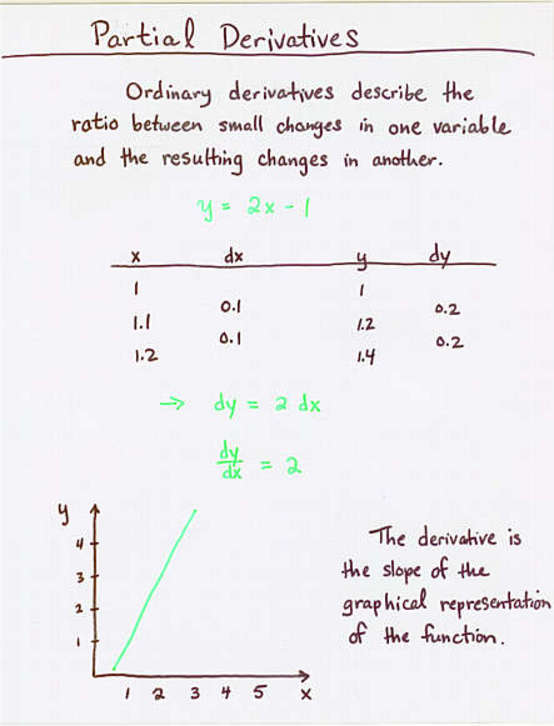 Partial Derivatives
Ordinary derivatives describe the
ratio between small changes in one variable
and the resulting changes in another.
y = 2x - 1
x dx y dy
1 1
0.1 0.2
1.1 1.2
0.1 0.2
1.2 1.4
⇒ dy = 2 dx
dy/dx = 2
y
4
3
2
1
1 2 3 4 5 x
The derivative is
the slope of the
graphical representation
of the function.